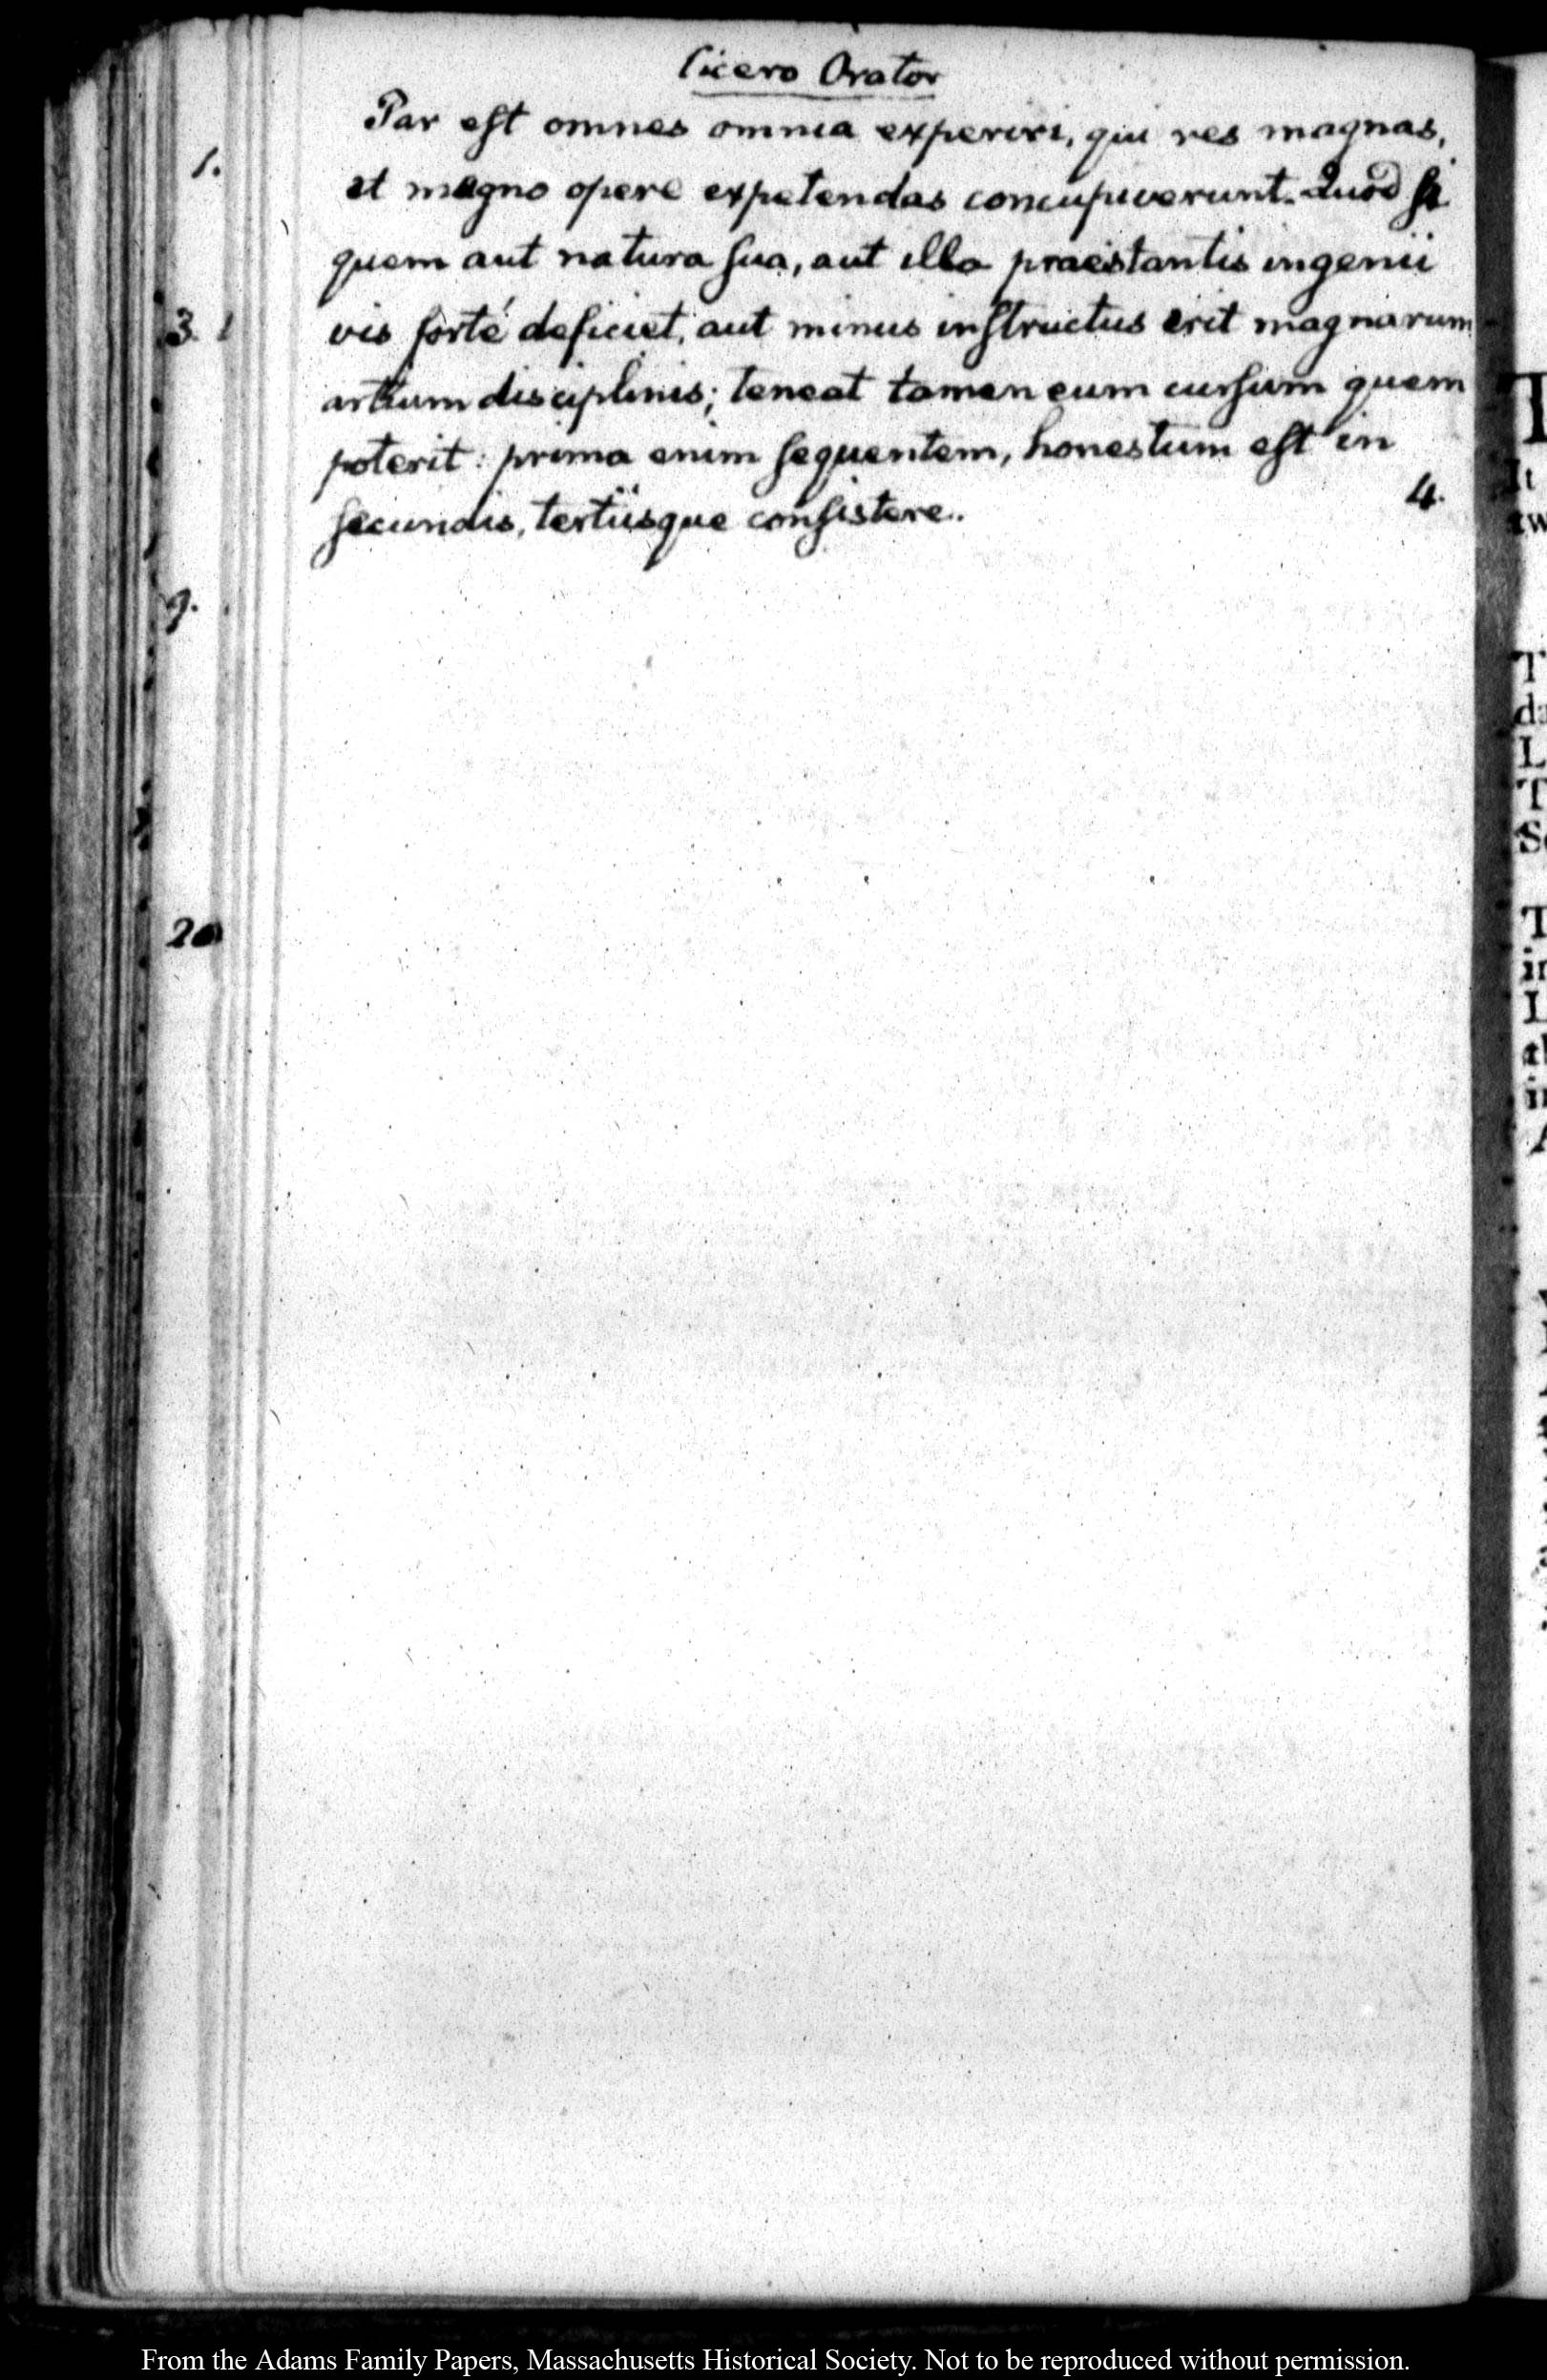 Cicero Orator
Par est omnes omnia experiri, qui res magnas,
1.
et magno opere expetendas concupiverunt. Quod si
quem aut natura sua, aut illa praestantis ingenii
3. 1
vis forté deficiet, aut minus instructus erit magnarum
artium disciplinis; teneat tamen eum cursum quem
poterit: prima enim sequentem, honestum est in
4.
secundis, tertiisque consistere.
9.
20
T
It
tw
T
da
L
T
So
T
in
L
th
in
A
From the Adams Family Papers, Massachusetts Historical Society. Not to be reproduced without permission.